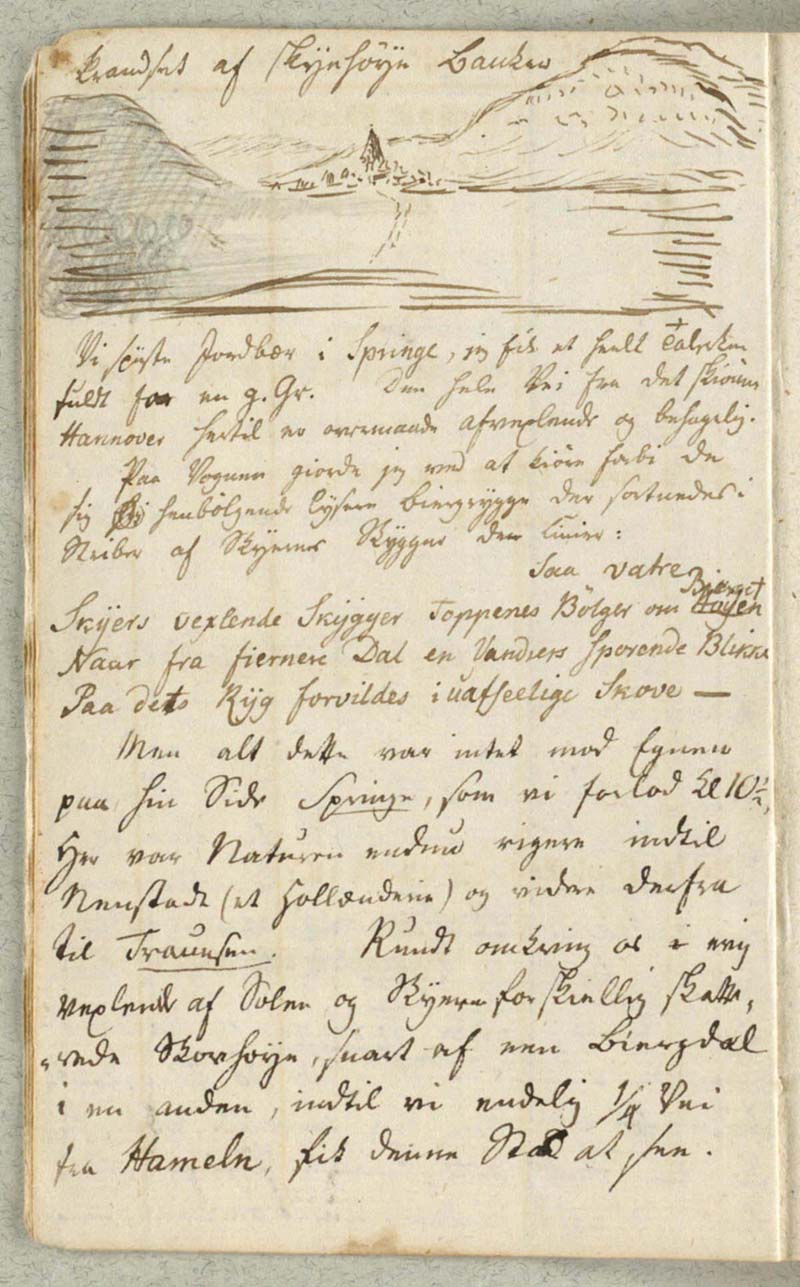 krandset af skyehøye Banker
Vi spiste Jordbær i Springe, jeg fik et heelt Talerken
fuldt for en g. Gr. Den hele Vei fra det skiønne
Hannover hertil er overmaade afvexlende og behagelig.
Paa Vognen giorde jeg ved at kiøre forbi de
sig henbølgende lysere Biergrygge der sortnedes i
Striber af Skyernes Skygger den Linier:
Saa vatre
Skyers vexlende Skygger Toppenes Bølger om Bierget
Naar fra fiernere Dal en Vandrers sporende Blikke
Paa dets Ryg forvildes i uafseelige Skove —
Men alt dette var intet mod Egnen
paa hin Side Springe, som vi forlod Kl 10½,
Her var Naturen endnu rigere indtil
Nenstadt (et Hollænderie) og videre derfra
til Traunsen. Rundt omkring os i evig
vexlende af Solen og Skyerne forskiellig skatte,
„rede Skovhøye, snart af een Biergdal
i en anden, indtil vi endelig ¼ Vei
fra Hameln, fik denne Stad at see.